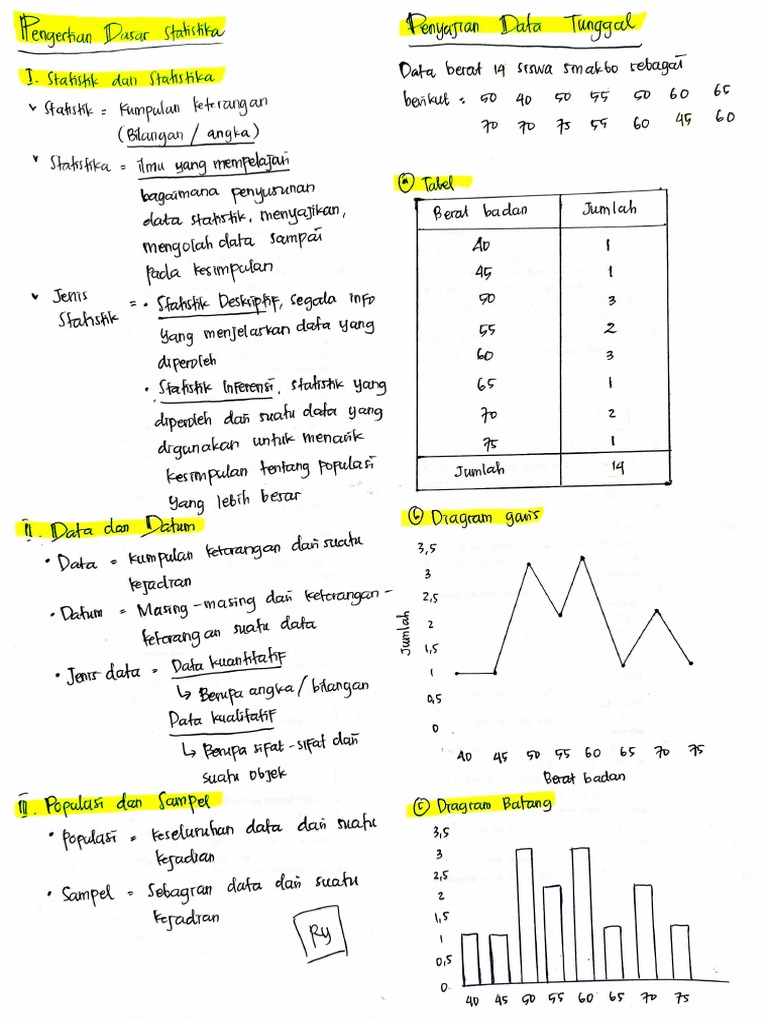 Pengertian Dasar Statistika
I. Statistik dan Statistika
Statistik = Kumpulan keterangan
(Bilangan / angka)
Statistika = ilmu yang mempelajari
bagaimana penyusunan
data statistik, menyajikan,
mengolah data sampai
pada kesimpulan
Jenis
Statistik = • Statistik Deskriptif, segala info
yang menjelaskan data yang
diperoleh
• Statistik Inferensi, statistik yang
diperoleh dari suatu data yang
digunakan untuk menarik
kesimpulan tentang populasi
yang lebih besar
II. Data dan Datum
• Data = kumpulan keterangan dari suatu
kejadian
• Datum = Masing-masing dari keterangan-
keterangan suatu data
• Jenis data = Data kuantitatif
↳ Berupa angka/bilangan
Data kualitatif
↳ Berupa sifat-sifat dari
suatu objek
III. Populasi dan Sampel
• Populasi = keseluruhan data dari suatu
kejadian
• Sampel = Sebagian data dari suatu
kejadian
Ry
Penyajian Data Tunggal
Data berat 14 siswa smakbo sebagai
berikut = 50 40 50 55 50 60 65
70 70 75 55 60 45 60
a Tabel
Berat badan Jumlah
40 1
45 1
50 3
55 2
60 3
65 1
70 2
75 1
Jumlah 14
b Diagram garis
3,5
3
2,5
2
1,5
1
0,5
0
Jumlah
40 45 50 55 60 65 70 75
Berat badan
c Diagram Batang
3,5
3
2,5
2
1,5
1
0,5
0
40 45 50 55 60 65 70 75